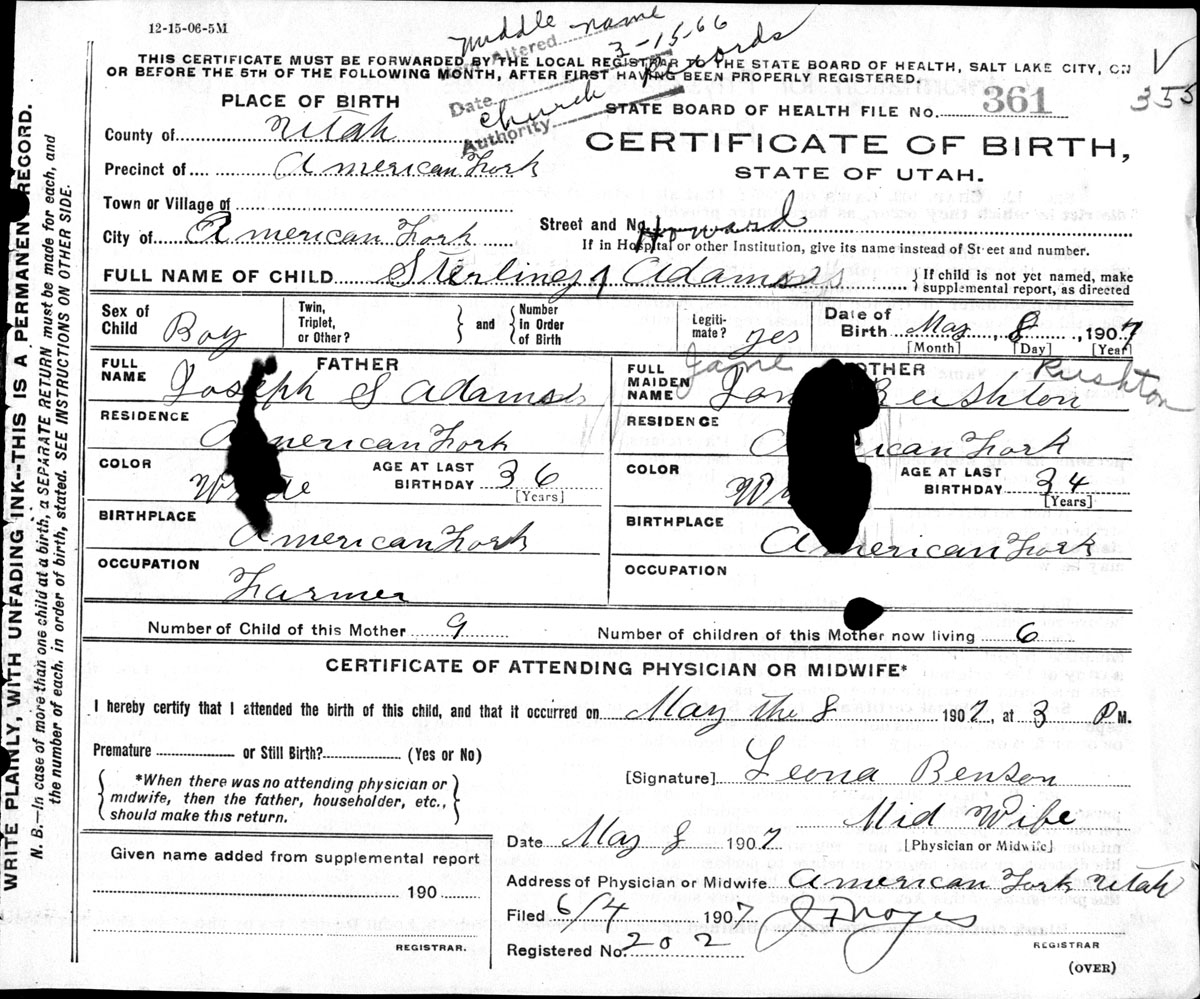 12-15-06-5M
middle name
Altered
3-15-66
Date
church Records
Authority
THIS CERTIFICATE MUST BE FORWARDED BY THE LOCAL REGISTRAR TO THE STATE BOARD OF HEALTH, SALT LAKE CITY, ON
OR BEFORE THE 5TH OF THE FOLLOWING MONTH, AFTER FIRST HAVING BEEN PROPERLY REGISTERED.
V
355
PLACE OF BIRTH
STATE BOARD OF HEALTH FILE NO. 361
County of Utah
CERTIFICATE OF BIRTH,
Precinct of American Fork
STATE OF UTAH.
Town or Village of
Street and No.
Howard
City of American Fork
If in Hospital or other Institution, give its name instead of Street and number.
FULL NAME OF CHILD Sterling Adams
If child is not yet named, make
supplemental report, as directed
Sex of Child Boy
Twin, Triplet, or Other?
and Number in Order of Birth
Legiti-mate? yes
Date of Birth May 8, 1907
[Month] [Day] [Year]
FATHER
FULL NAME Joseph S Adams
RESIDENCE American Fork
COLOR
AGE AT LAST BIRTHDAY 36
[Years]
BIRTHPLACE American Fork
OCCUPATION Farmer
MOTHER
Jane Rushton
FULL MAIDEN NAME Rushton
RESIDENCE American Fork
COLOR
AGE AT LAST BIRTHDAY 34
[Years]
BIRTHPLACE American Fork
OCCUPATION
Number of Child of this Mother 9
Number of children of this Mother now living 6
CERTIFICATE OF ATTENDING PHYSICIAN OR MIDWIFE*
I hereby certify that I attended the birth of this child, and that it occurred on May the 8 1907, at 3 P M.
Premature or Still Birth? (Yes or No)
*When there was no attending physician or
midwife, then the father, householder, etc.,
should make this return.
[Signature] Leona Benson
Mid Wife
Date May 8 1907
[Physician or Midwife]
Given name added from supplemental report
190
REGISTRAR.
Address of Physician or Midwife American Fork Utah
Filed 6/4 1907 J F Noyes
Registered No. 202
REGISTRAR
(OVER)
WRITE PLAINLY, WITH UNFADING INK--THIS IS A PERMANENT RECORD.
N. B.—In case of more than one child at a birth, a SEPARATE RETURN must be made for each, and
the number of each, in order of birth, stated. SEE INSTRUCTIONS ON OTHER SIDE.